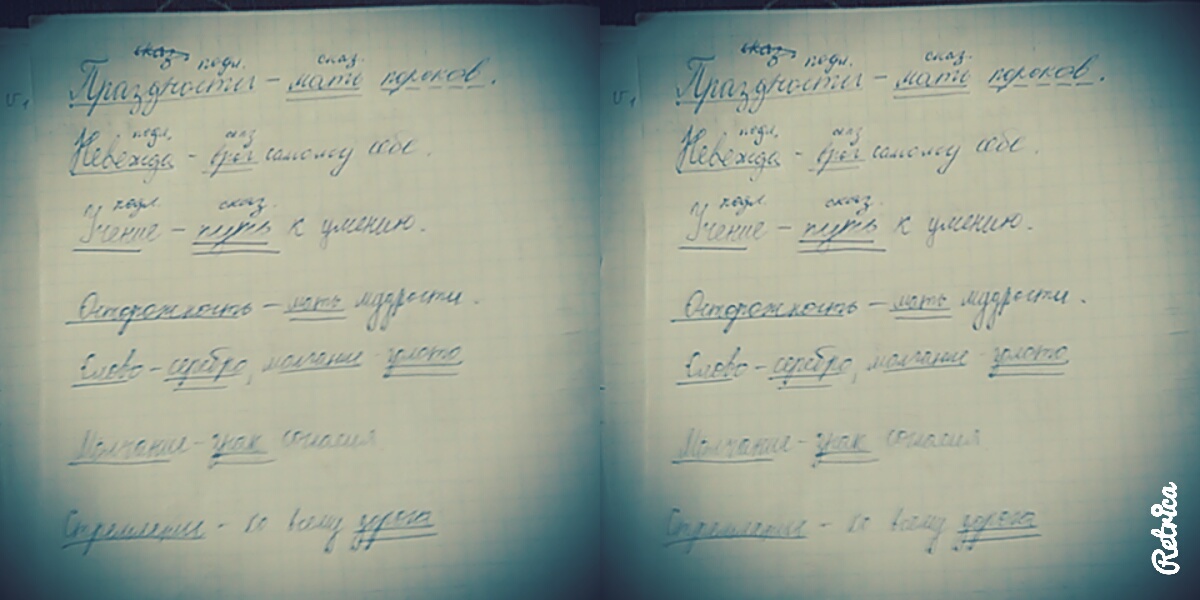 сказ подл. сказ.
v. Праздность – мать пороков.
подл. сказ
Невежда – враг самому себе.
подл. сказ.
Учение – путь к умению.
Осторожность – мать мудрости.
Слово – серебро, молчание – золото
Молчание – знак согласия
Стремление – ко всему дорога
сказ подл. сказ.
v. Праздность – мать пороков.
подл. сказ
Невежда – враг самому себе.
подл. сказ.
Учение – путь к умению.
Осторожность – мать мудрости.
Слово – серебро, молчание – золото
Молчание – знак согласия
Стремление – ко всему дорога
Retrica